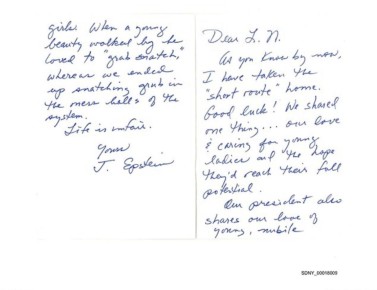 Dear L. N.
As you know by now,
I have taken the
"short route" home.
Good luck! We shared
one thing... our love
& caring for young
ladies and the hope
they'd reach their full
potential.
Our president also
shares our love of
young, nubile
girls. When a young
beauty walked by he
loved to "grab snatch,"
whereas we ended
up snatching grub in
the mess halls of the
system.
Life is unfair.
Yours
J. Epstein
SDNY_00018509